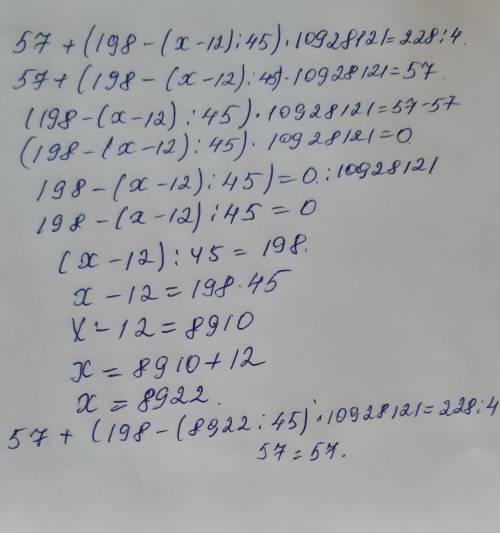 57 + (198 - (x-12) : 45) · 10928121 = 228 : 4.
57 + (198 - (x-12) : 45) · 10928121 = 57.
(198 - (x-12) : 45) · 10928121 = 57-57
(198 - (x-12) : 45) · 10928121 = 0
198 - (x-12) : 45) = 0 : 10928121
198 - (x-12) : 45 = 0
(x-12) : 45 = 198.
x - 12 = 198 · 45
x - 12 = 8910
x = 8910 + 12
x = 8922.
57 + (198 - (8922 : 45) · 10928121 = 228 : 4
57 = 57.